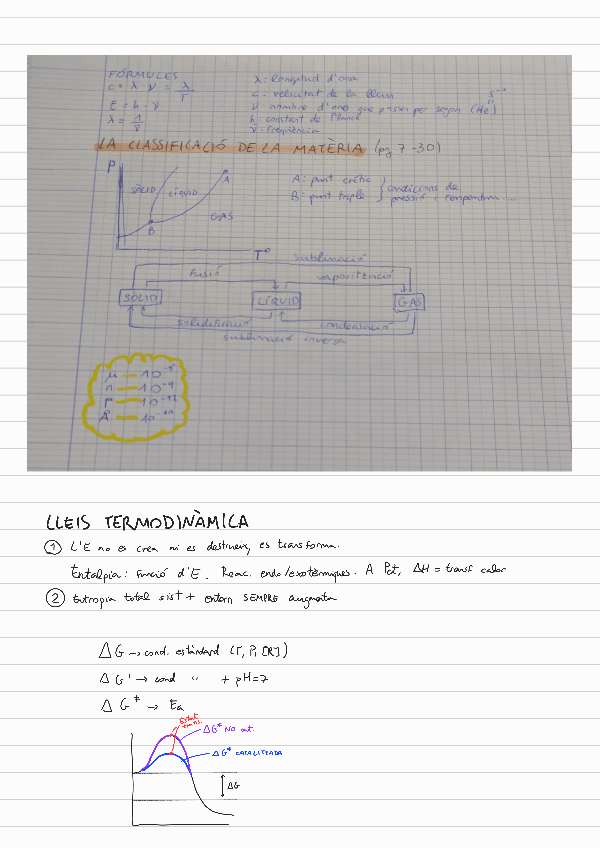 FÓRMULES
c = λ · ν = λ/T
E = h · ν
λ = 1/ν
λ: longitud d'ona
c: velocitat de la llum
ν nombre d'ones que passen per segon (Hz)
s⁻¹
h: constant de Planck
ν = freqüència
LA CLASSIFICACIÓ DE LA MATÈRIA (pg 7-30)
P
SÒLID
LÍQUID
GAS
A
B
Tº
A: punt crític
B: punt triple
condicions de
pressió i temperatura
sublimació
fusió
vaporització
SÒLID
LÍQUID
GAS
solidificació
condensació
sublimació inversa
μ — 10⁻⁶
n — 10⁻⁹
p — 10⁻¹²
Å — 10⁻¹⁰
LLEIS TERMODINÀMICA
① L'E no es crea ni es destrueix, es transforma.
Entalpia: funció d'E. Reac. endo/exotèrmiques. A P ct, ΔH = transf calor
② Entropia total sist + entorn SEMPRE augmenta
ΔG → cond. estàndard (T, P, [R])
ΔG' → cond " + pH=7
ΔG‡ → Ea
Estat
trans.
ΔG‡ NO cat.
ΔG‡ CATALITZADA
ΔG